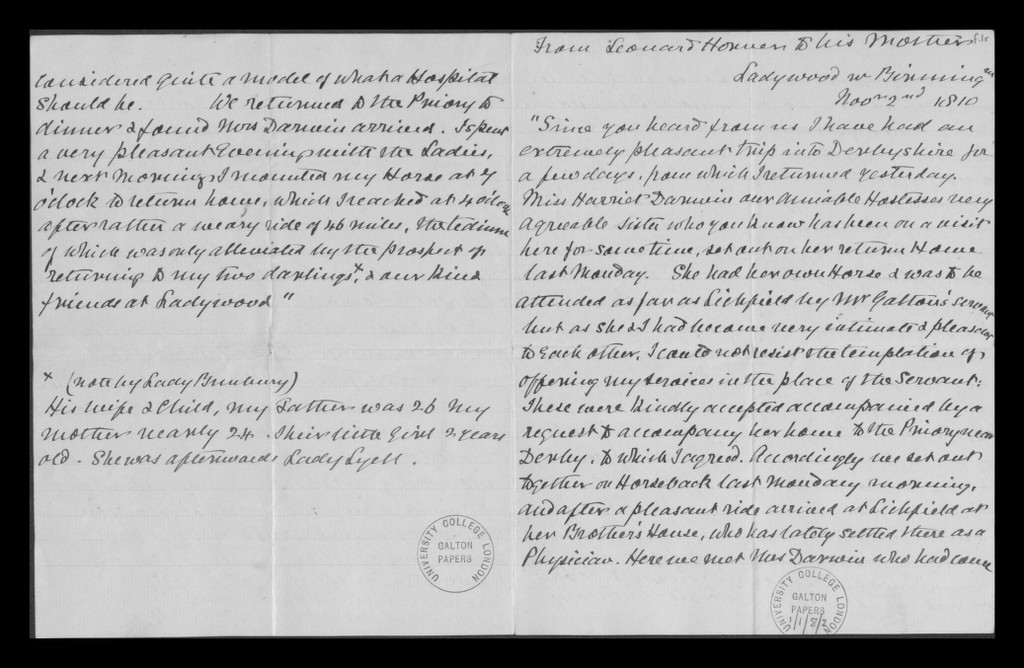 From Leonard Horner to his Mother
Ladywood nr Birmingm
Novr 2nd 1810
"Since you heard from us I have had an
extremely pleasant trip into Derbyshire for
a few days, from which I returned yesterday.
Miss Harriet Darwin our amiable Hostesses very
agreeable Sister who you know has been on a visit
here for some time, set out on her return Home
last Monday. She had her own Horse & was to be
attended as far as Lichfield by Mr Galton's servant
but as she & I had become very intimate & pleasant
to each other, I could not resist the temptation of
offering my services in the place of the Servant:
These were kindly accepted accompanied by a
request to accompany her home to the Priory near
Derby, to which I agreed. Accordingly we set out
together on Horseback last Monday morning,
and after a pleasant ride arrived at Lichfield at
her Brother's House, who has lately settled there as a
Physician. Here we met Mrs Darwin who had come
UNIVERSITY COLLEGE LONDON
GALTON
PAPERS
1/1/5/2
considered quite a model of what a Hospital
should be. We returned to the Priory to
dinner & found Mrs Darwin arrived. I spent
a very pleasant Evening with the Ladies,
& next morning I mounted my Horse at 7
o'clock to return home, which I reached at 4 o'clock
after rather a weary ride of 46 miles, the tedium
of which was only alleviated by the prospect of
returning to my two darlings x, & our kind
friends at Ladywood"
x (note by Lady Bunbury)
His wife & child, my Father was 26 my
mother nearly 24. Their little Girl 2 years
old. She was afterwards Lady Lyell.
UNIVERSITY COLLEGE LONDON
GALTON
PAPERS